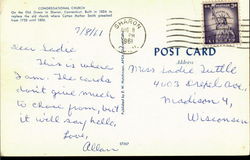 CONGREGATIONAL CHURCH
On the Old Green in Sharon, Connecticut. Built in 1824 to
replace the old church where Cotton Mather Smith preached
from 1755 until 1806.
7/8/61
Dear Sadie
This is where
I am. The cards
don't give much
to choose from, but
it will say hello.
Love,
Allan
SHARON
PM
1961
POST CARD
Address
Miss Sadie Tuttle
4003 Drexel Ave.,
Madison 4,
Wisconsin